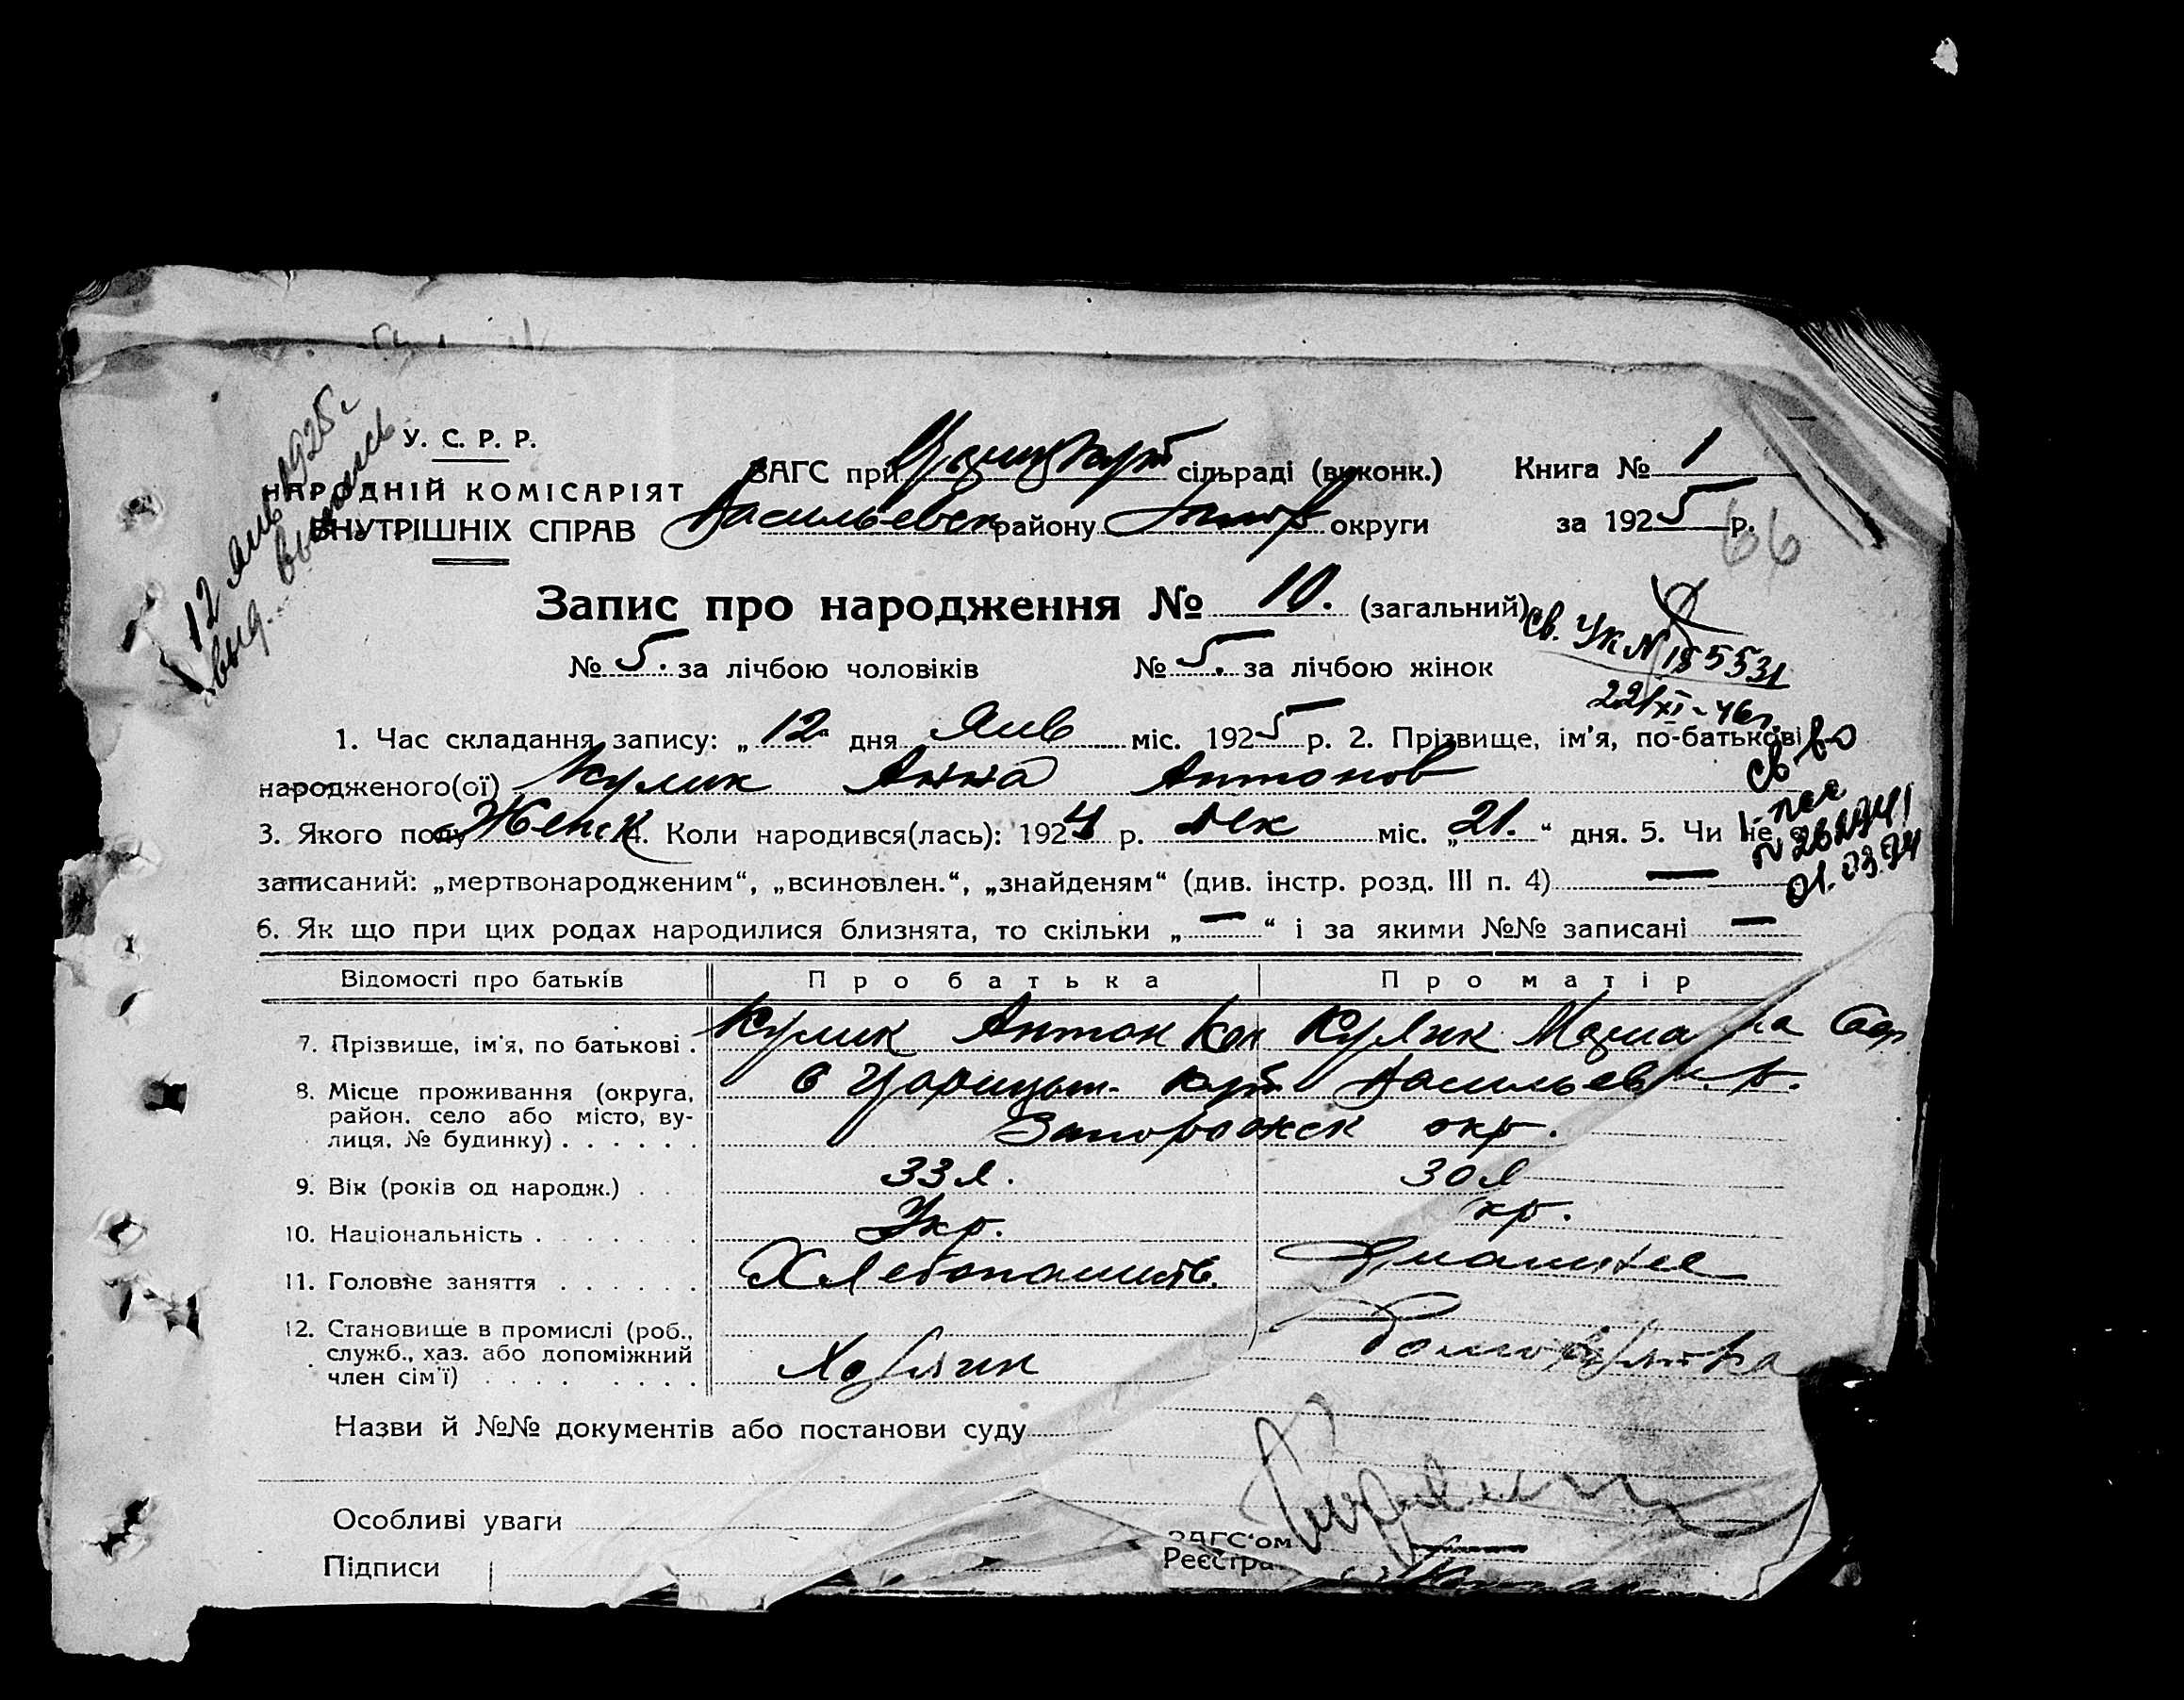 12 янв 1925 г
выд. выпись
У. С. Р. Р.
НАРОДНІЙ КОМІСАРІЯТ
ВНУТРІШНІХ СПРАВ
ЗАГС при сільраді (виконк.) Книга № 1
Васильевск району Запор округи за 1925 р.
66
Запис про народження № 10. (загальний)
№ 5. за лічбою чоловіків № 5. за лічбою жінок
Св. УК № 185531
22/XI-46г.
1. Час складання запису: „12" дня Янв міс. 1925 р. 2. Прізвище, ім'я, по-батькові
народженого(ої) Кулик Анна Антонов
св-во
3. Якого полу Женск 4. Коли народився(лась): 1924 р. Дек міс. „21." дня. 5. Чи не
01.03.94
записаний: „мертвонародженим", „всиновлен.", „знайденям" (див. інстр. розд. III п. 4) —
6. Як що при цих родах народилися близнята, то скільки „—" і за якими №№ записані —
Відомості про батьків Про батька Про матір
7. Прізвище, ім'я, по батькові . Кулик Антон Кулик
8. Місце проживання (округа, район, село або місто, вулиця, № будинку) . . . . . . с Царицын Кут Васильев
Запорожск окр.
9. Вік (років од народж.) . . 33 л. 30 л
10. Національність . . . . . . . Укр. кр.
11. Головне заняття . . . . . . Хлебопашеств.
12. Становище в промислі (роб., служб., хаз. або допоміжний член сім'ї) . . . . . . . . Хозяин
Назви й №№ документів або постанови суду
Особливі уваги
ЗАГС'ом
Підписи Реєстра